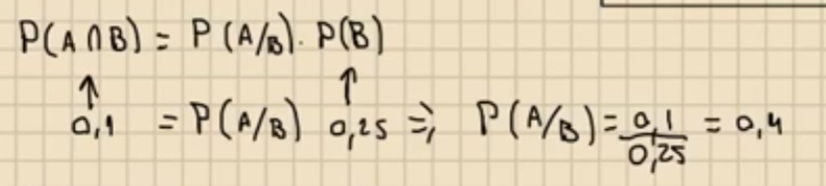 P(A∩B) = P(A/B). P(B)
↑ ↑
0,1 = P(A/B) 0,25 => P(A/B) = 0,1/0,25 = 0,4